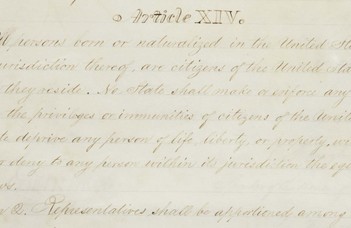 Article XIV.
ll persons born or naturalized in the United Sta
urisdiction thereof, are citizens of the United Sta
they reside. No State shall make or enforce any
the privileges or immunities of citizens of the Unite
te deprive any person of life, liberty, or property, wi
or deny to any person within its jurisdiction the eq
ws.
n 2. Representatives shall be apportioned among